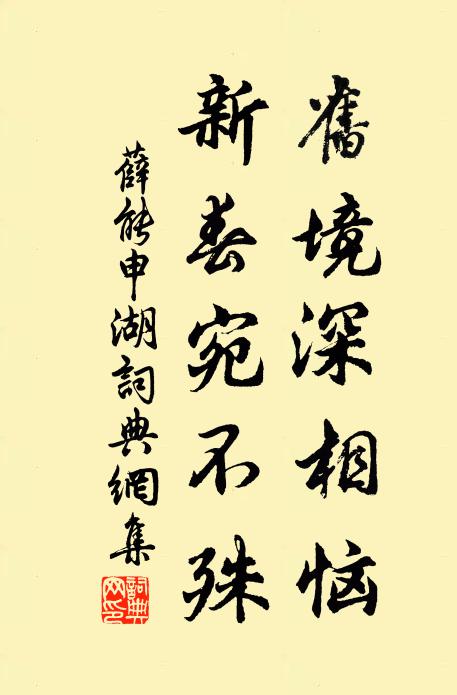 舊境深相恼
新春宛不殊
薛能申湖詞典網集
詞典网印